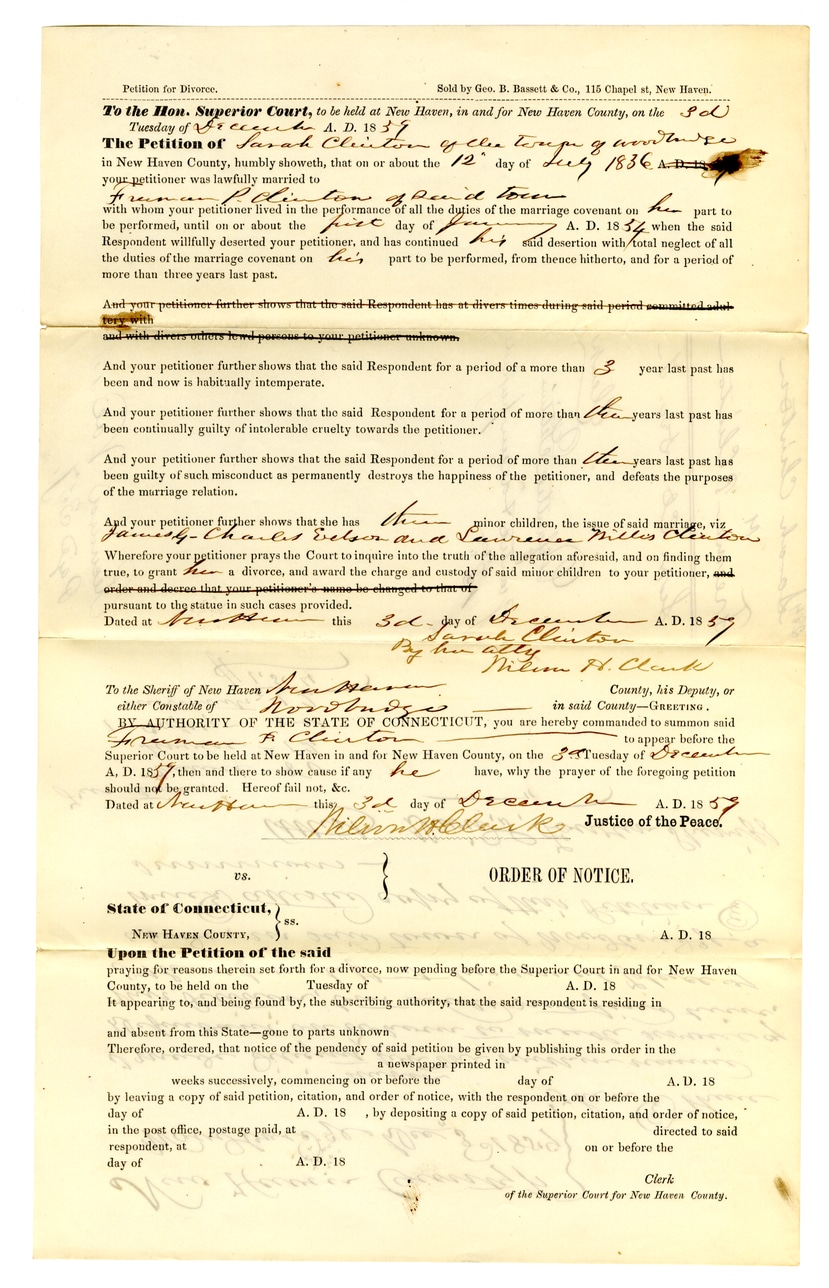 Petition for Divorce. Sold by Geo. B. Bassett & Co., 115 Chapel st, New Haven.
To the Hon. Superior Court, to be held at New Haven, in and for New Haven County, on the 3d
Tuesday of December A. D. 1859
The Petition of Sarah Clinton of the town of Woodbridge
in New Haven County, humbly showeth, that on or about the 12" day of July 1836 A. D. 18
your petitioner was lawfully married to
Freeman P. Clinton of said town
with whom your petitioner lived in the performance of all the duties of the marriage covenant on her part to
be performed, until on or about the first day of January A. D. 1854 when the said
Respondent willfully deserted your petitioner, and has continued his said desertion with total neglect of all
the duties of the marriage covenant on his part to be performed, from thence hitherto, and for a period of
more than three years last past.
And your petitioner further shows that the said Respondent has at divers times during said period committed adul-
tery with
and with divers others lewd persons to your petitioner unknown.
And your petitioner further shows that the said Respondent for a period of a more than 3 year last past has
been and now is habitually intemperate.
And your petitioner further shows that the said Respondent for a period of more than three years last past has
been continually guilty of intolerable cruelty towards the petitioner.
And your petitioner further shows that the said Respondent for a period of more than three years last past has
been guilty of such misconduct as permanently destroys the happiness of the petitioner, and defeats the purposes
of the marriage relation.
And your petitioner further shows that she has three minor children, the issue of said marriage, viz
James G- Charles Edson and Lawrence Willis Clinton
Wherefore your petitioner prays the Court to inquire into the truth of the allegation aforesaid, and on finding them
true, to grant her a divorce, and award the charge and custody of said minor children to your petitioner, and
order and decree that your petitioner's name be changed to that of
pursuant to the statue in such cases provided.
Dated at New Haven this 3d day of December A. D. 1859
Sarah Clinton
By her atty
Wilson H. Clark
To the Sheriff of New Haven New Haven County, his Deputy, or
either Constable of Woodbridge in said County—GREETING.
BY AUTHORITY OF THE STATE OF CONNECTICUT, you are hereby commanded to summon said
Freeman P. Clinton to appear before the
Superior Court to be held at New Haven in and for New Haven County, on the 3d Tuesday of December
A, D. 1859, then and there to show cause if any he have, why the prayer of the foregoing petition
should not be granted. Hereof fail not, &c.
Dated at New Haven this 3d day of December A. D. 1859
Wilson H. Clark Justice of the Peace.
vs. } ORDER OF NOTICE.
State of Connecticut, } ss.
NEW HAVEN COUNTY, A. D. 18
Upon the Petition of the said
praying for reasons therein set forth for a divorce, now pending before the Superior Court in and for New Haven
County, to be held on the Tuesday of A. D. 18
It appearing to, and being found by, the subscribing authority, that the said respondent is residing in
and absent from this State—gone to parts unknown
Therefore, ordered, that notice of the pendency of said petition be given by publishing this order in the
a newspaper printed in
weeks successively, commencing on or before the day of A. D. 18
by leaving a copy of said petition, citation, and order of notice, with the respondent on or before the
day of A. D. 18 , by depositing a copy of said petition, citation, and order of notice,
in the post office, postage paid, at directed to said
respondent, at on or before the
day of A. D. 18
Clerk
of the Superior Court for New Haven County.